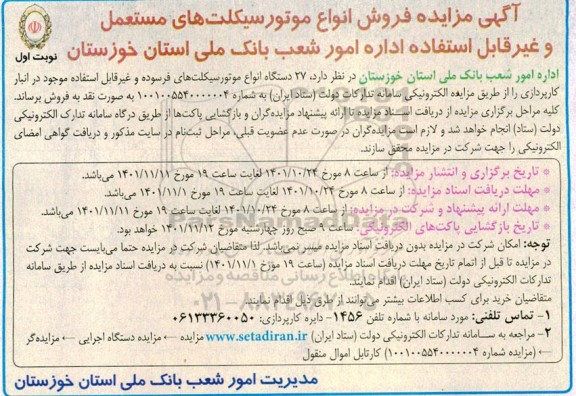 آگهی مزایده فروش انواع موتورسیکلت‌های مستعمل
و غیرقابل استفاده اداره امور شعب بانک ملی استان خوزستان
نوبت اول
اداره امور شعب بانک ملی استان خوزستان در نظر دارد، ۲۷ دستگاه انواع موتورسیکلت‌های فرسوده و غیرقابل استفاده موجود در انبار
کارپردازی را از طریق مزایده الکترونیکی سامانه تدارکات دولت (ستاد ایران) به شماره ۱۰۰۱۰۰۵۵۴۰۰۰۰۰۰۴ به صورت نقد به فروش برساند.
کلیه مراحل برگزاری مزایده از دریافت اسناد مزایده تا ارائه پیشنهاد مزایده‌گران و بازگشایی پاکت‌ها از طریق درگاه سامانه تدارک الکترونیکی
دولت (ستاد) انجام خواهد شد و لازم است مزایده‌گران در صورت عدم عضویت قبلی، مراحل ثبت‌نام در سایت مذکور و دریافت گواهی امضای
الکترونیکی را جهت شرکت در مزایده محقق سازند.
* تاریخ برگزاری و انتشار مزایده: از ساعت ۸ مورخ ۱۴۰۱/۱۰/۲۴ لغایت ساعت ۱۹ مورخ ۱۴۰۱/۱۱/۱۱ می‌باشد.
* مهلت دریافت اسناد مزایده: از ساعت ۸ مورخ ۱۴۰۱/۱۰/۲۴ لغایت ساعت ۱۹ مورخ ۱۴۰۱/۱۱/۱ می‌باشد.
* مهلت ارائه پیشنهاد و شرکت در مزایده: از ساعت ۸ مورخ ۱۴۰۱/۱۰/۲۴ لغایت ساعت ۱۹ مورخ ۱۴۰۱/۱۱/۱۱ می‌باشد.
* تاریخ بازگشایی پاکت‌های الکترونیکی: ساعت ۹ صبح روز چهارشنبه مورخ ۱۴۰۱/۱۱/۱۲ خواهد بود.
توجه: امکان شرکت در مزایده بدون دریافت اسناد مزایده میسر نمی‌باشد. لذا متقاضیان شرکت در مزایده حتما می‌بایست جهت شرکت
در مزایده تا قبل از اتمام تاریخ مهلت دریافت اسناد مزایده (ساعت ۱۹ مورخ ۱۴۰۱/۱۱/۱) نسبت به دریافت اسناد مزایده از طریق سامانه
تدارکات الکترونیکی دولت (ستاد ایران) اقدام نمایند.
متقاضیان خرید برای کسب اطلاعات بیشتر می‌توانند از طرق ذیل اقدام نمایند.
۱- تماس تلفنی: مورد سامانه با شماره تلفن ۱۴۵۶- دایره کارپردازی: ۰۶۱۳۳۳۶۰۰۵۰
۲- مراجعه به سامانه تدارکات الکترونیکی دولت (ستاد ایران) www.setadiran.ir مزایده ← مزایده دستگاه اجرایی ← مزایده‌گر
← (مزایده شماره ۱۰۰۱۰۰۵۵۴۰۰۰۰۰۰۴) کارتابل اموال منقول
مدیریت امور شعب بانک ملی استان خوزستان